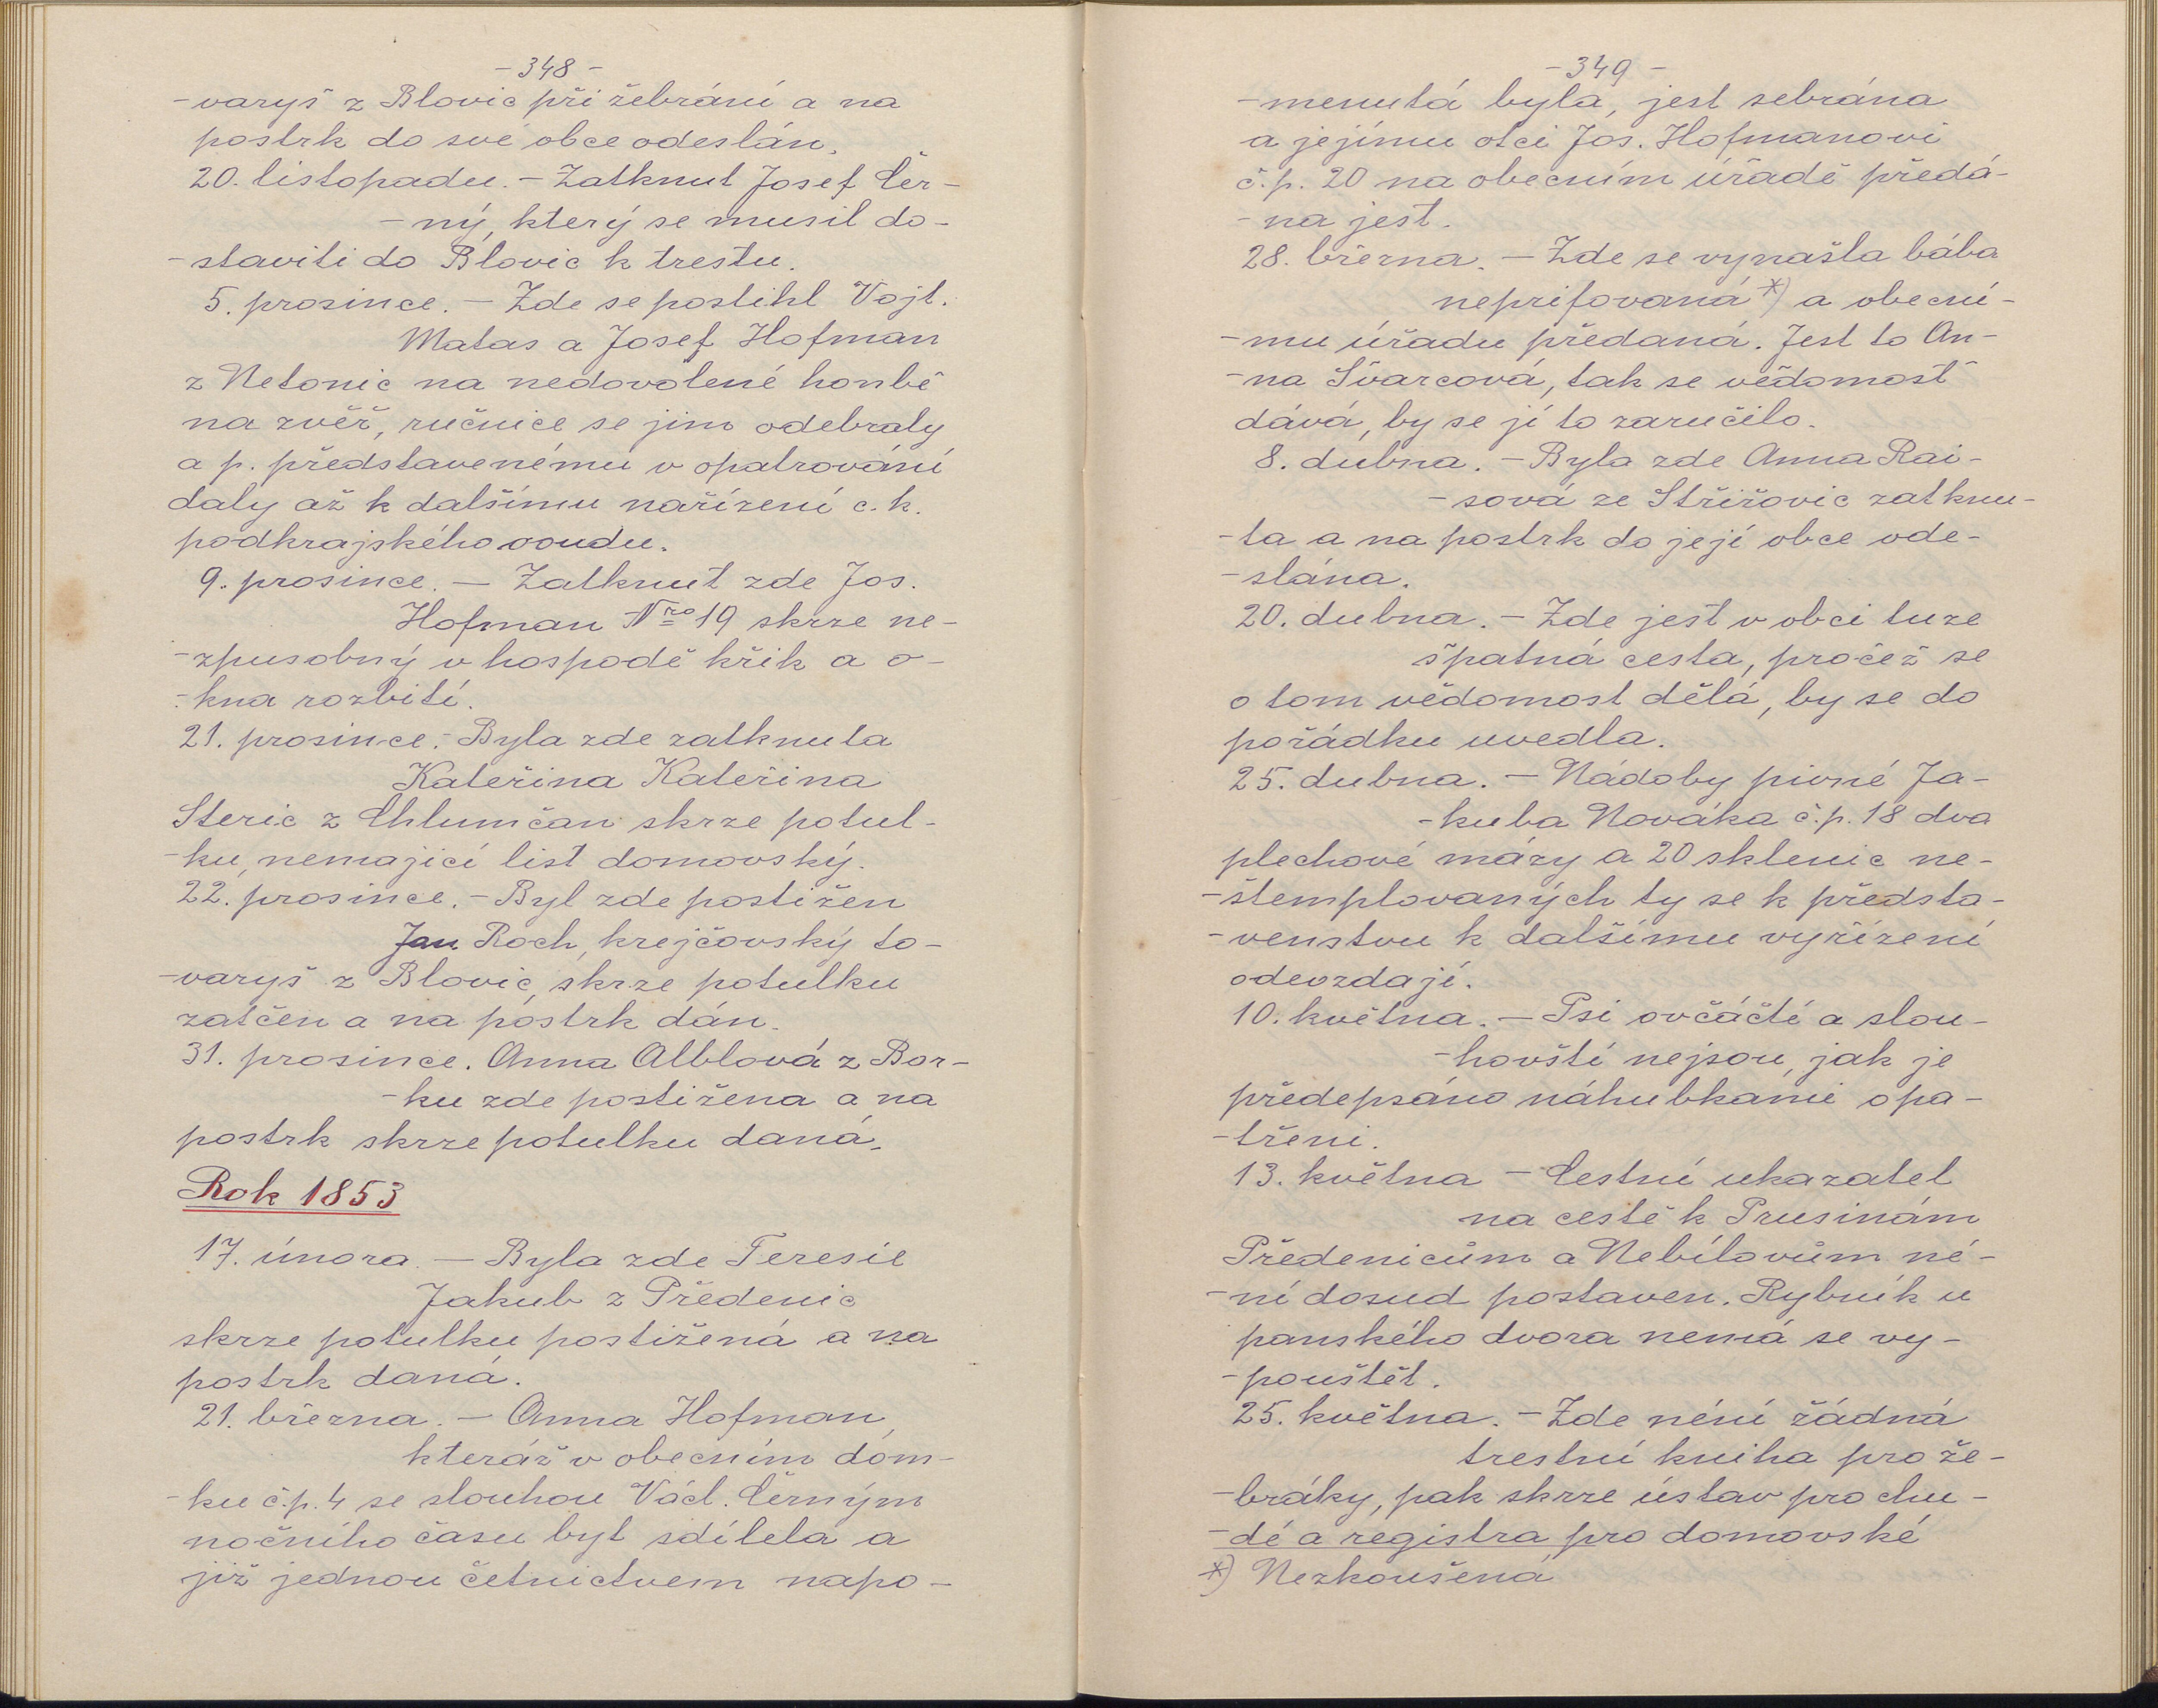 -348-
-varyš z Blovic při žebrání a na
postrk do své obce odeslán.
20. listopadu. - Zatknut Josef Čer-
-ný, který se musil do-
-staviti do Blovic k trestu.
5. prosince. - Zde se postihl Vojt.
Matas a Josef Hofman
z Netonic na nedovolené honbě
na zvěř, ručnice se jim odebraly
a p. představenému v opatrování
daly až k dalšímu nařízení c. k.
podkrajského soudu.
9. prosince. - Zatknut zde Jos.
Hofman Nro 19 skrze ne-
-zpusobný v hospodě křik a o-
-kna rozbití.
21. prosince. - Byla zde zatknuta
Kateřina Kateřina
Steric z Chlumčan skrze potul-
-ku, nemající list domovský.
22. prosince. - Byl zde postižen
Jan Roch, krejčovský to-
-varyš z Blovic, skrze potulku
zatčen a na postrk dán.
31. prosince. Anna Alblová z Bor-
-ku zde postižena a na
postrk skrze potulku daná.
Rok 1853
17. února. - Byla zde Teresie
Jakub z Předenic
skrze potulku postižená a na
postrk daná.
21. března. - Anna Hofman,
kteráž v obecním dóm-
-ku č.p. 4 se slouhou Václ. Černým
nočního času byt sdílela a
již jednou četnictvem napo-
-349-
-menutá byla, jest sebrána
a jejímu otci Jos. Hofmanovi
č.p. 20 na obecním úřadě předá-
-na jest.
28. března. - Zde se vynašla bába
neprifovaná *) a obecní-
-mu úřadu předaná. Jest to An-
-na Švarcová, tak se vědomost
dává, by se jí to zaručilo.
8. dubna. - Byla zde Anna Rai-
-sová ze Střížovic zatknu-
-ta a na postrk do její obce ode-
-slána.
20. dubna. - Zde jest v obci tuze
špatná cesta, pročež se
o tom vědomost dělá, by se do
pořádku uvedla.
25. dubna. - Nádoby pivné Ja-
-kuba Nováka č.p. 18 dva
plechové mázy a 20 sklenic ne-
-štemplovaných ty se k předsta-
-venstvu k dalšímu vyřízení
odevzdají.
10. května. - Psi ovčáčtí a slou-
-hovští nejsou, jak je
předepsáno náhubkami opa-
-třeni.
13. května - Cestní ukazatel
na cestě k Prusinám
Předenicům a Nebílovům ne-
-ní dosud postaven. Rybník u
panského dvora nemá se vy-
-pouštět.
25. května. - Zde néní žádná
trestní kniha pro že-
-bráky, pak skrze ústav pro chu-
-dé a registra pro domovské
*) Nezkoušená